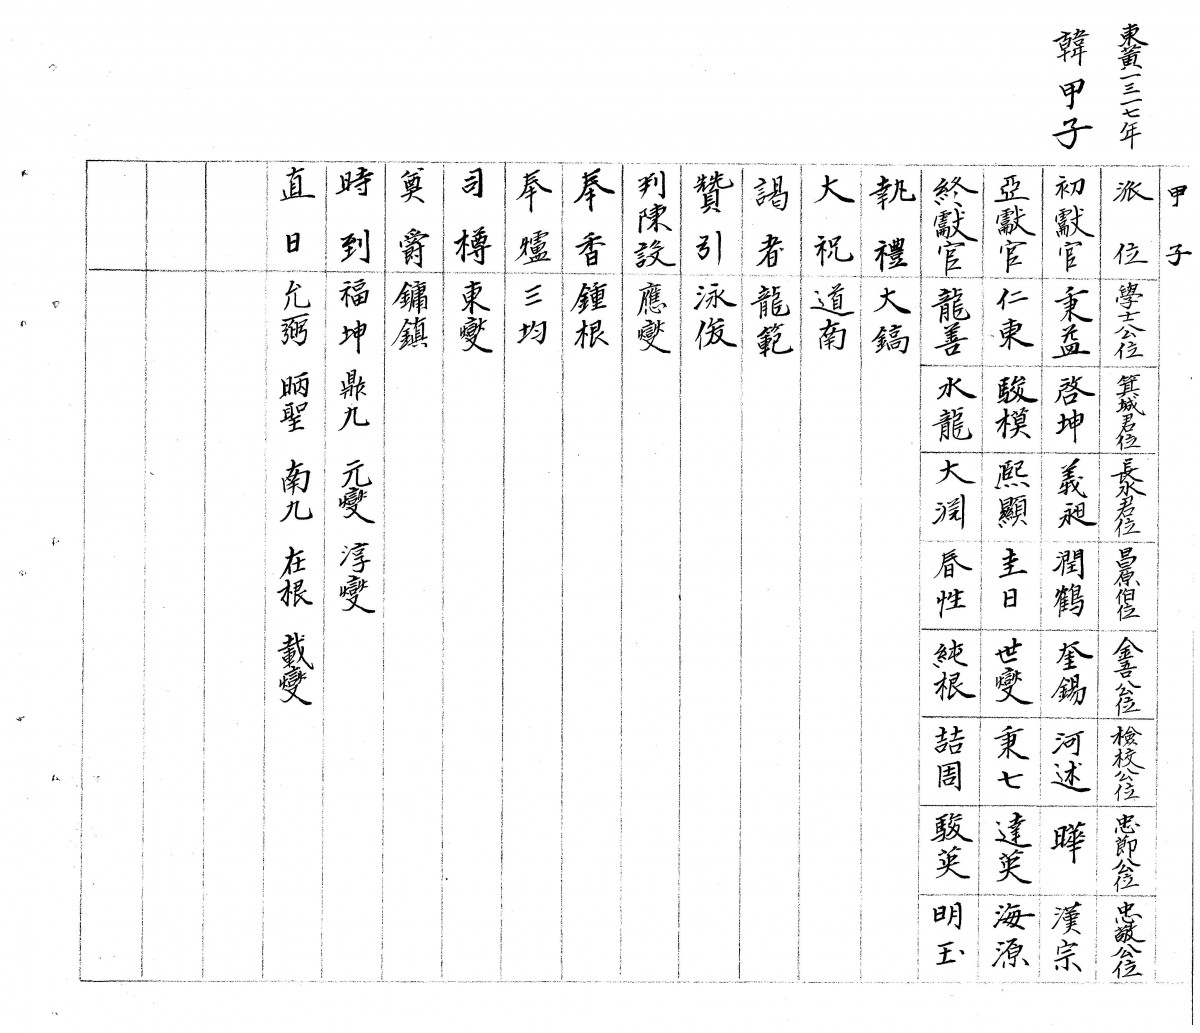 東黃一三一七年
韓甲子
甲子
派位 學士公位 箕城君位 長水君位 昌原伯位 金吾公位 檢校公位 忠節公位 忠毅公位
初獻官 秉益 啓坤 義昶 潤鶴 奎錫 河述 曄 漢宗
亞獻官 仁東 駿模 熙顯 圭日 世燮 秉七 達英 海源
終獻官 龍善 水龍 大淵 春性 純根 喆周 駿英 明玉
執禮 大鎬
大祝 道南
謁者 龍範
贊引 泳俊
判陳設 應燮
奉香 鍾根
奉爐 三均
司樽 東燮
奠爵 鏞鎮
時到 福坤 鼎九 元燮 淳燮
直日 允弼 昞聖 南九 在根 載燮